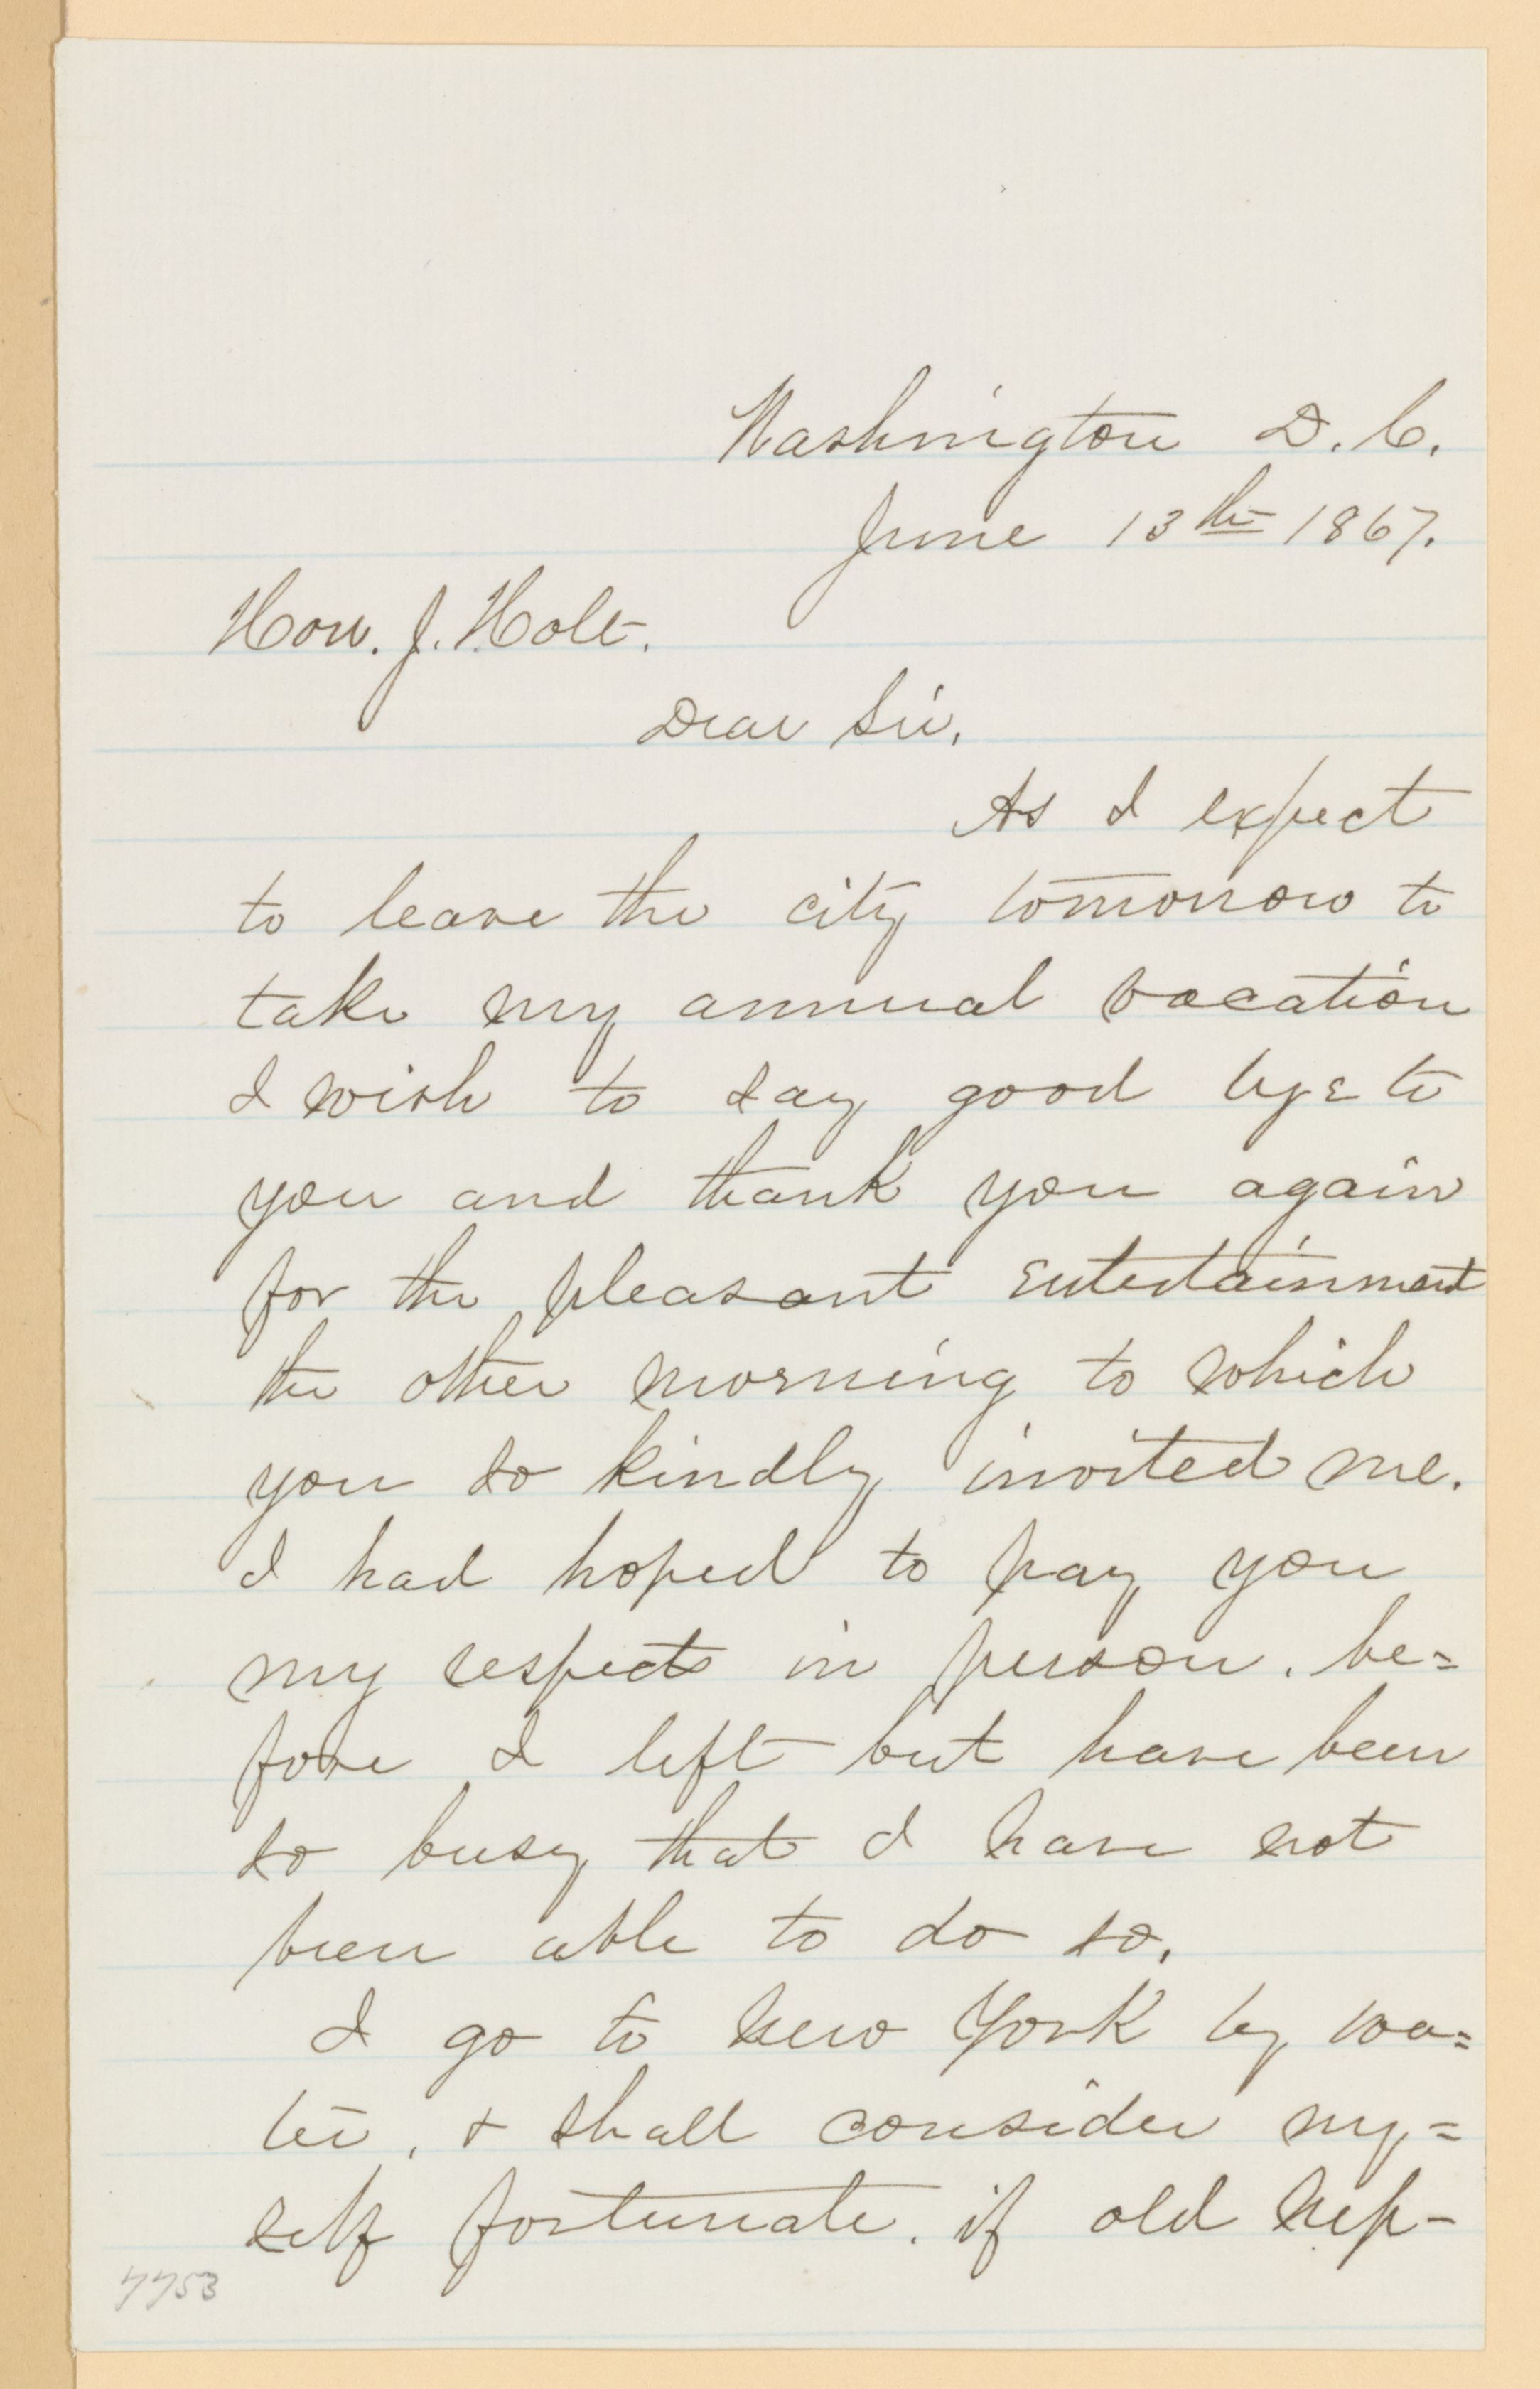 Washington D.C.
June 13th 1867.
Hon. J. Holt.
Dear Sir,
As I expect
to leave the city tomorrow to
take my annual vacation
I wish to say good bye to
you and thank you again
for the pleasant entertainment
the other morning to which
you so kindly invited me.
I had hoped to pay you
my respects in person, be=
fore I left but have been
so busy that I have not
been able to do so.
I go to New York by wa=
ter, & shall consider my=
self fortunate, if old Nep-
7753